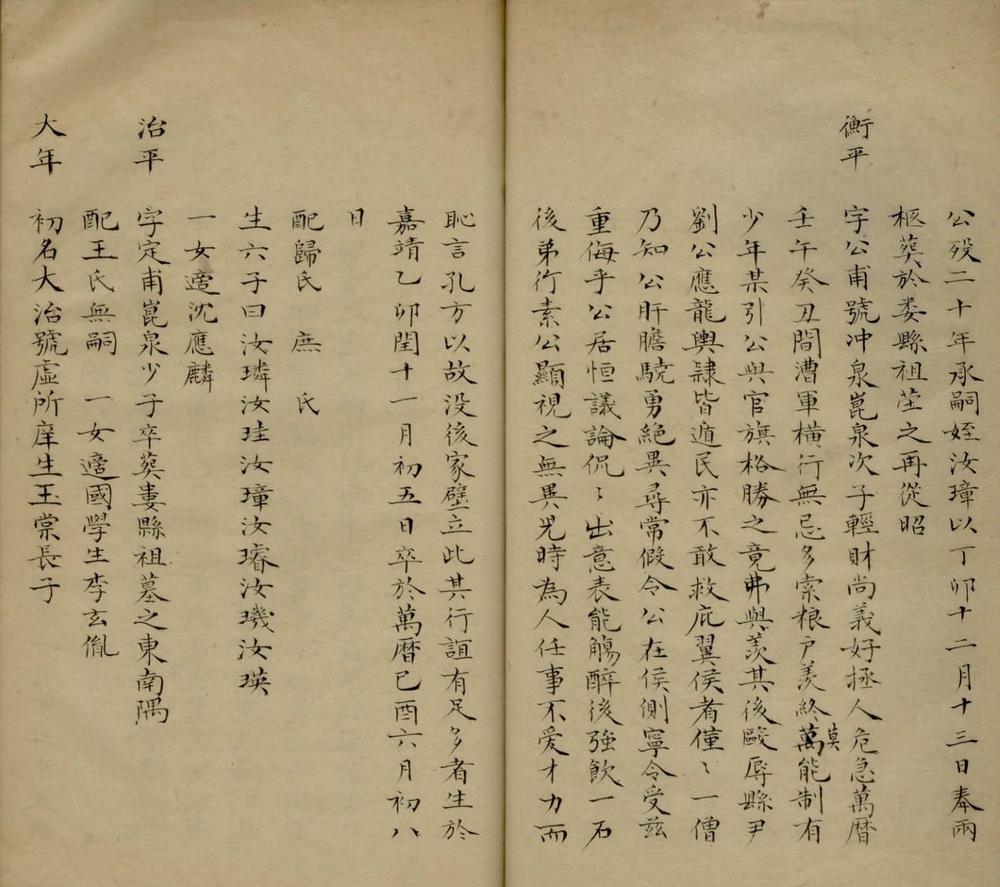 公歿二十年承嗣姪汝璋以丁卯十二月十三日奉兩
柩葬於婁縣祖塋之再從昭
衡平
字公甫號冲泉崑泉次子輕財尚義好拯人危急萬曆
壬午癸丑間漕軍橫行無忌多索粮户羡終萬莫能制有
少年某引公與官旗格勝之竟弗與羡其後毆辱縣尹
劉公應龍輿隸皆遁民亦不敢救庇翼侯者僅〻一僧
乃知公肝膽驍勇絶異尋常假令公在侯側寧令受茲
重侮乎公居恒議論侃〻出意表能觴醉後強飲一石
後弟行素公顯視之無異児時為人任事不爱才力而
恥言孔方以故没後家壁立此其行誼有足多者生於
嘉靖乙卯閏十一月初五日卒於萬曆己酉六月初八
日
配歸氏 庶 氏
生六子曰汝璘汝珪汝璋汝璿汝璣汝瑛
一女適沈應麟
治平
字定甫崑泉少子卒葬婁縣祖墓之東南隅
配王氏無嗣 一女適國學生李玄胤
大年
初名大治號虛所庠生玉棠長子